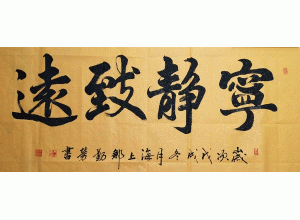 寧靜致遠
歲次戊戌冬月海上勤書